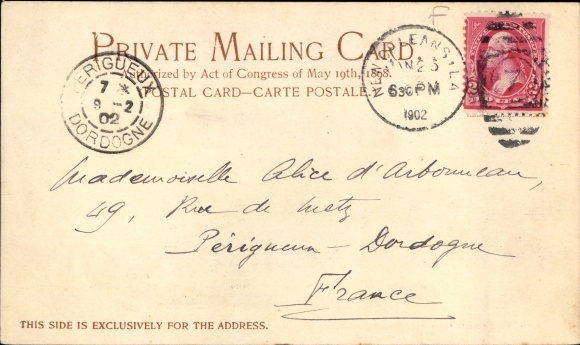 F
PRIVATE MAILING CARD
Authorized by Act of Congress of May 19th, 1898.
POSTAL CARD—CARTE POSTALE.
NEW ORLEANS, LA
JAN 23
630 PM
1902
PÉRIGUEUX
7 *
9 - 2
02
DORDOGNE
Mademoiselle Alice d'Arbonneau,
49, Rue de Metz
Périgueux - Dordogne
France
THIS SIDE IS EXCLUSIVELY FOR THE ADDRESS.